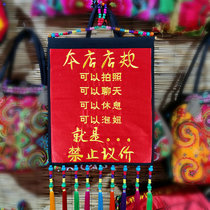 本店店规
可以拍照
可以聊天
可以休息
可以泡妞
就是...
禁止议价